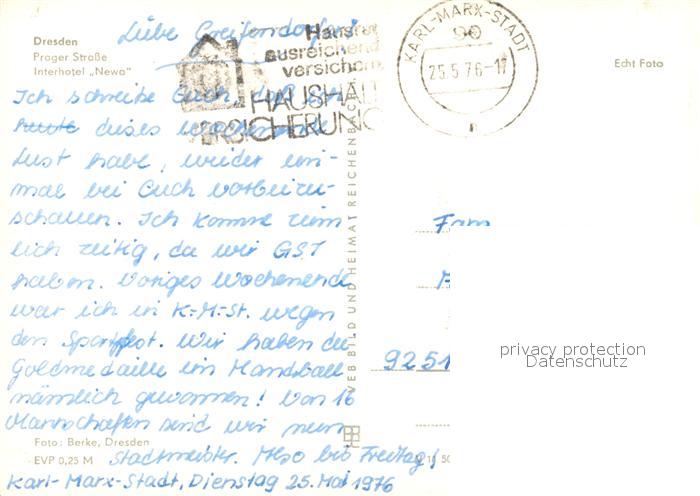 Liebe Greifendorfer!
Dresden
Prager Straße
Interhotel „Newa"
Hausrat
ausreichend
versichern
HAUSHALT
VERSICHERUNG
KARL-MARX-STADT
90
25.5.76-17
n
Echt Foto
Ich schreibe Euch, daß ich
heute dieses Wochenende
Lust habe, wieder ein-
mal bei Euch vorbeizu-
schauen. Ich komme ziem
lich zeitig, da wir GST
haben. Voriges Wochenende
war ich in K.-M.-St. wegen
den Sportfest. Wir haben die
Goldmedaille im Handball
nämlich gewonnen! Von 16
Mannschaften sind wir nun
Stadtmeister. Also bis Freitag!
Karl-Marx-Stadt, Dienstag 25. Mai 1976
Foto: Berke, Dresden
EVP 0,25 M
VEB BILD UND HEIMAT REICHENBACH
Fam
9251
privacy protection
Datenschutz